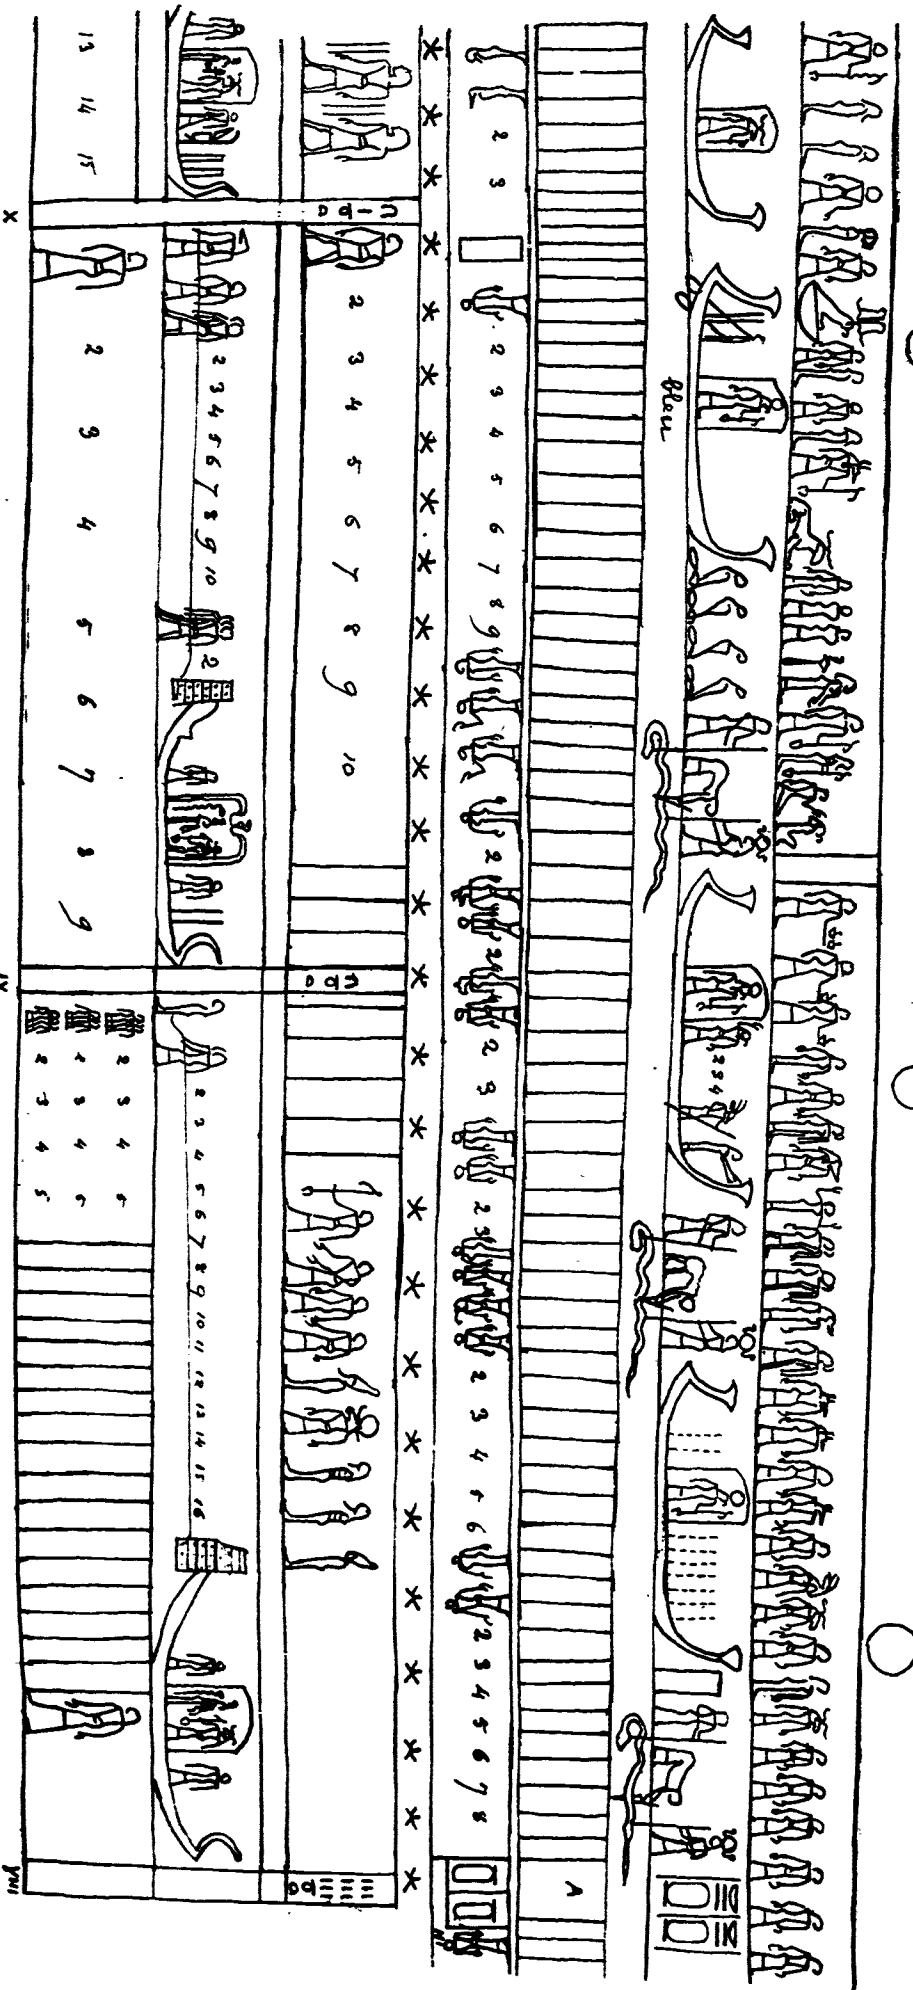 2 3 4
bleu
A
2 3 2 3 4 5 6 7 8 9 2 2 2 3 2 3 2 3 4 5 6 2 3 4 5 6 7 8
2 3 4 5 6 7 8 9 10
2 3 4 5 6 7 8 9 10 2 2 3 4 5 6 7 8 9 10 11 12 13 14 15 16
13 14 15 2 3 4 5 6 7 8 9
2 3 4 5
2 3 4 5
2 3 4 5
X IX VIII